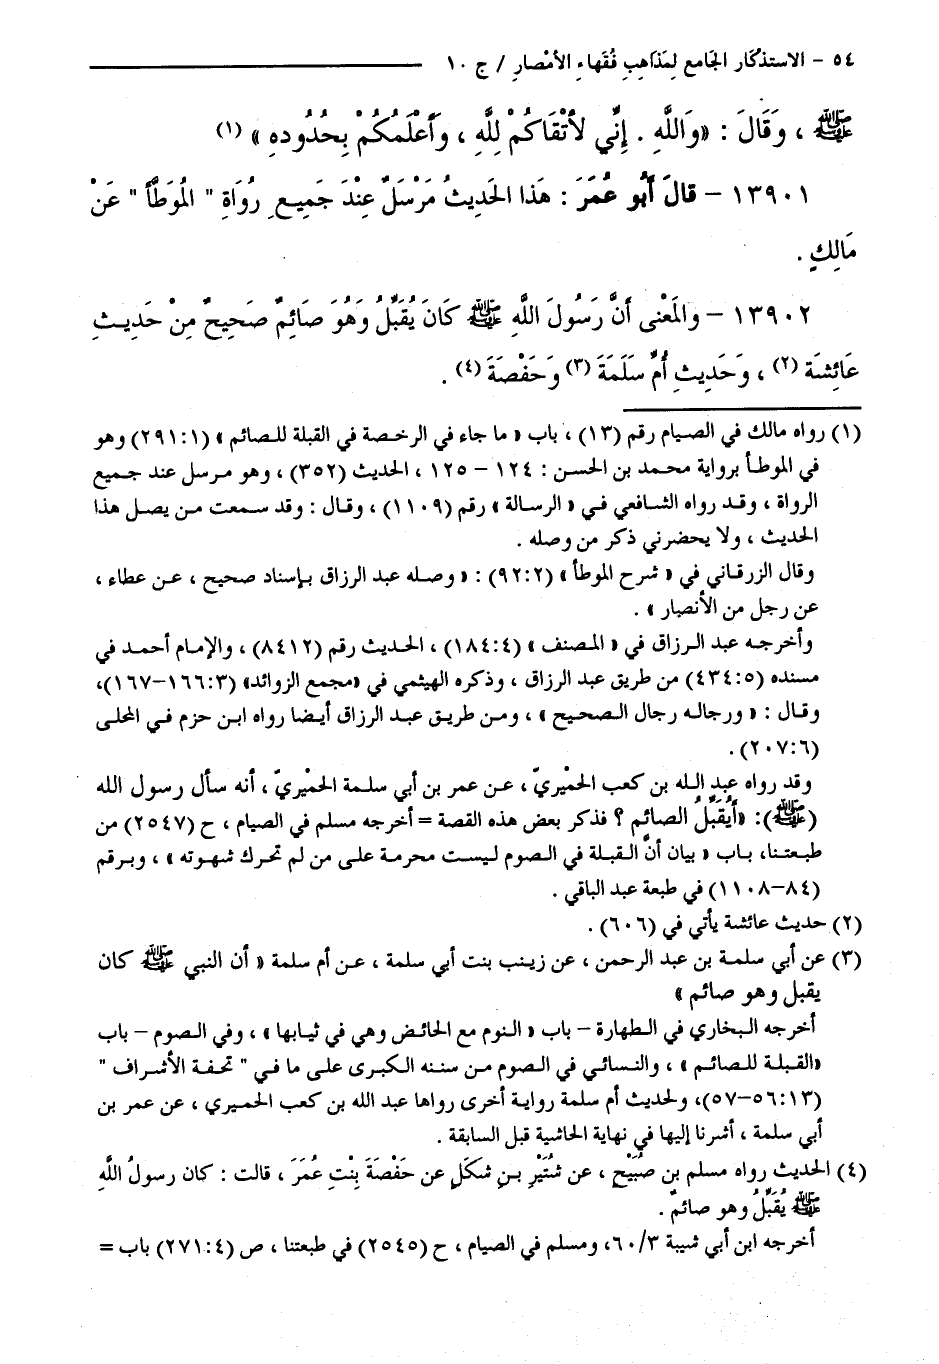 ٥٤ - الاستذكار الجامع لمَذاهِبِ فُقَهاءِ الأمْصارِ / ج ١٠
ﷺ ، وَقَالَ : «وَاللَّهِ . إِنِّي لأَتْقَاكُمْ لِلَّهِ ، وَأَعْلَمُكُمْ بِحُدُودِهِ » (١)
١٣٩٠١ - قالَ أَبُو عُمَرَ : هَذا الحَدِيثُ مُرْسَلٌ عِنْدَ جَمِيعِ رُوَاةِ " المُوَطَّأ " عَنْ
مَالِكٍ .
١٣٩٠٢ - والمَعْنى أنَّ رَسُولَ اللَّهِ ﷺ كَانَ يُقَبِّلُ وَهُوَ صَائِمٌ صَحِيحٌ مِنْ حَدِيثِ
عَائِشَة (٢) ، وَحَدِيثِ أُمِّ سَلَمَةَ (٣) وَحَفْصَةَ (٤) .
(١) رواه مالك في الصيام رقم (١٣) ، باب « ما جاء في الرخصة في القبلة للصائم » (٢٩١:١) وهو
في الموطأ برواية محمد بن الحسن : ١٢٤ – ١٢٥ ، الحديث (٣٥٢) ، وهو مرسل عند جميع
الرواة ، وقد رواه الشافعي في « الرسالة » رقم (١١٠٩) ، وقال : وقد سمعت من يصل هذا
الحديث ، ولا يحضرني ذكر من وصله .
وقال الزرقاني في « شرح الموطأ » (٩٢:٢) : « وصله عبد الرزاق بإسناد صحيح ، عن عطاء ،
عن رجل من الأنصار » .
وأخرجه عبد الرزاق في « المصنف » (١٨٤:٤) ، الحديث رقم (٨٤١٢) ، والإمام أحمد في
مسنده (٤٣٤:٥) من طريق عبد الرزاق ، وذكره الهيثمي في «مجمع الزوائد» (١٦٦:٣–١٦٧)،
وقال : « ورجاله رجال الصحيح » ، ومن طريق عبد الرزاق أيضا رواه ابن حزم في المحلى
(٢٠٧:٦) .
وقد رواه عبد الله بن كعب الحمْيريّ ، عن عمر بن أبي سلمة الحمْيريّ ، أنه سأل رسول الله
(ﷺ): «أَيُقَبِّلُ الصائم ؟ فذكر بعض هذه القصة = أخرجه مسلم في الصيام ، ح (٢٥٤٧) من
طبعتنا، باب « بيان أنَّ القبلة في الصوم ليست محرمة على من لم تحرك شهوته » ، وبرقم
(٨٤–١١٠٨) في طبعة عبد الباقي .
(٢) حديث عائشة يأتي في (٦٠٦) .
(٣) عن أبي سلمة بن عبد الرحمن ، عن زينب بنت أبي سلمة ، عن أم سلمة « أن النبي ﷺ كان
يقبل وهو صائم »
أخرجه البخاري في الطهارة – باب « النوم مع الحائض وهي في ثيابها » ، وفي الصوم – باب
«القبلة للصائم » ، والنسائي في الصوم من سننه الكبرى على ما في " تحفة الأشراف "
(٥٦:١٣–٥٧)، ولحديث أم سلمة رواية أخرى رواها عبد الله بن كعب الحميري ، عن عمر بن
أبي سلمة ، أشرنا إليها في نهاية الحاشية قبل السابقة .
(٤) الحديث رواه مسلم بن صُبَيْحٍ ، عن شُتَيْرِ بنِ شكَلٍ عن حَفْصَةَ بِنْتِ عُمَرَ ، قالت : كان رسولُ اللَّهِ
ﷺ يُقَبِّلُ وهو صائمٌ .
أخرجه ابن أبي شيبة ٦٠/٣، ومسلم في الصيام ، ح (٢٥٤٥) في طبعتنا ، ص (٢٧١:٤) باب =